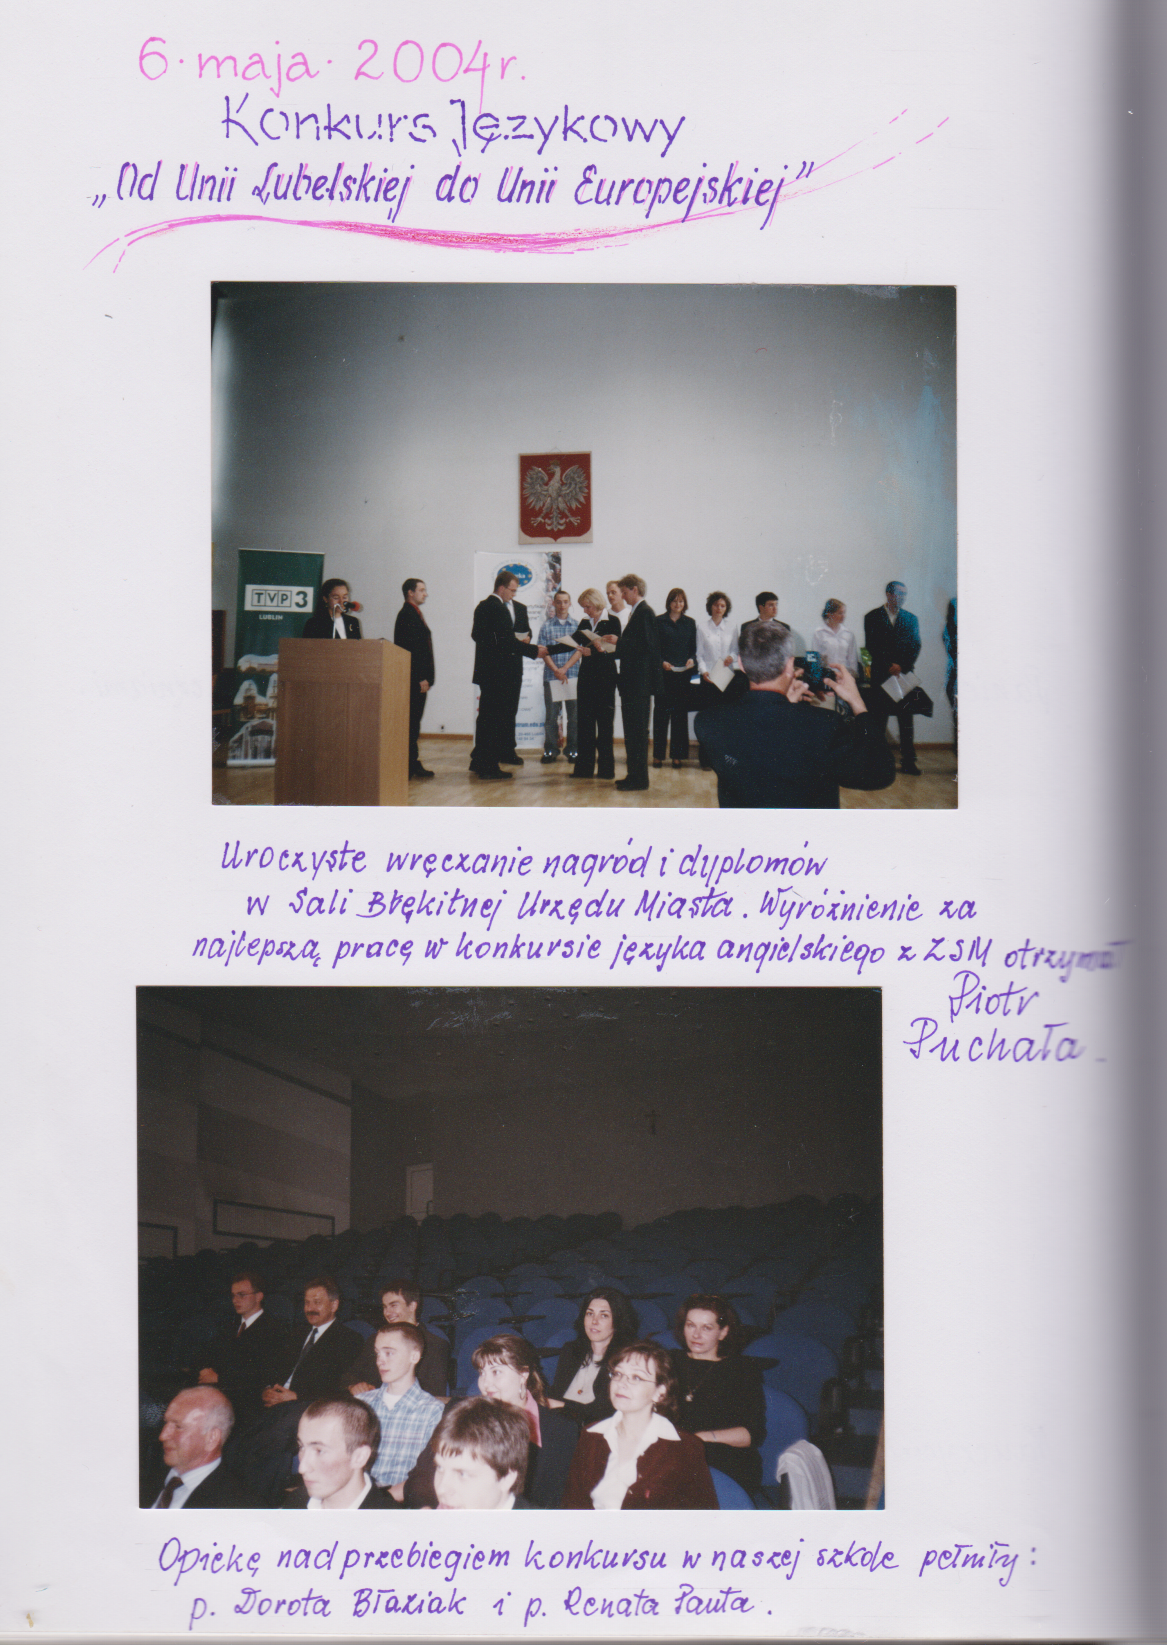 6·maja·2004r.
Konkurs Językowy
„Od Unii Lubelskiej do Unii Europejskiej”
TVP3
LUBLIN
Uroczyste wręczanie nagród i dyplomów
w Sali Błękitnej Urzędu Miasta. Wyróżnienie za
najlepszą pracę w konkursie języka angielskiego z ZSM otrzymał
Piotr
Puchała.
Opiekę nad przebiegiem konkursu w naszej szkole pełniły:
p. Dorota Błaziak i p. Renata Pauta.